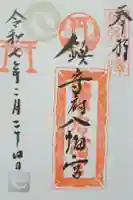 奉拝
鎮守府八幡宮
令和七年二月二十四日